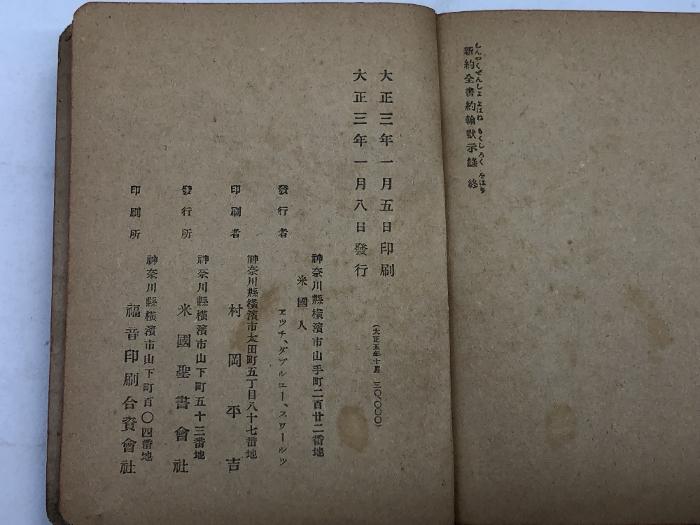 新約全書約翰默示錄 終
しんやくぜんしよ よはね もくしろく をはり
大正三年一月五日印刷
大正三年一月八日發行
(大正五年十月 三〇、〇〇〇)
神奈川縣橫濱市山手町二百廿二番地
米國人
發行者 ヱッチ、ダブルユー、スワールツ
神奈川縣橫濱市太田町五丁目八十七番地
印刷者 村岡平吉
神奈川縣橫濱市山下町五十三番地
發行所 米國聖書會社
神奈川縣橫濱市山下町百〇四番地
印刷所 福音印刷合資會社